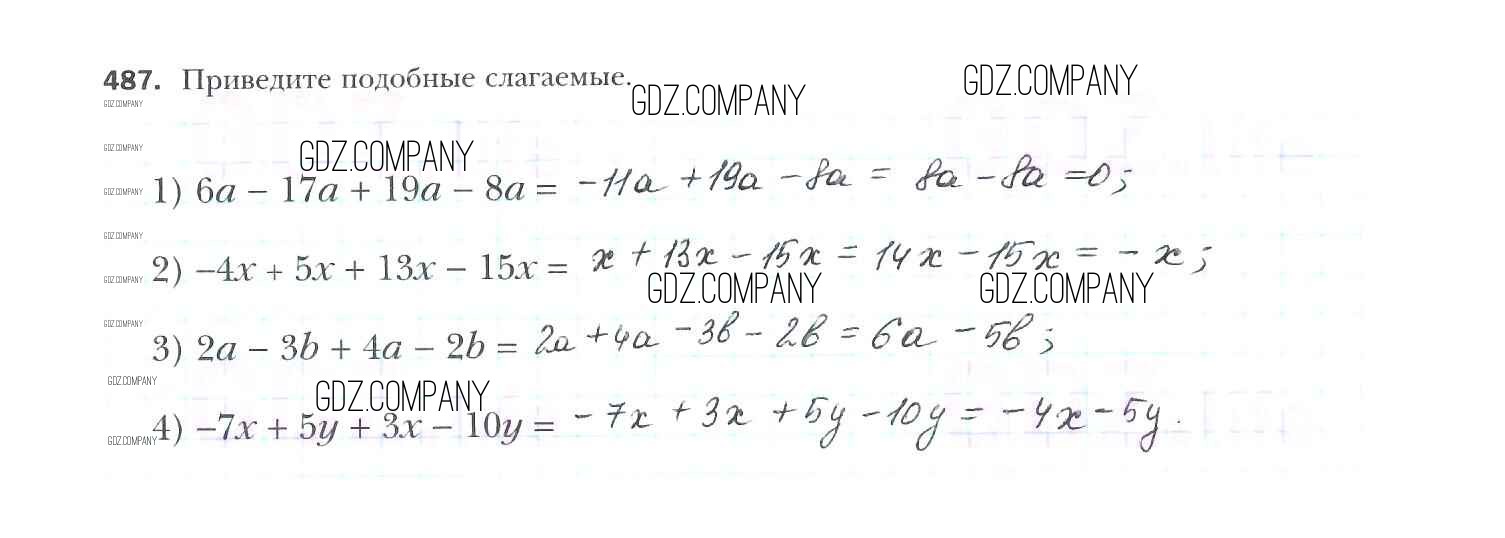 487. Приведите подобные слагаемые.
GDZ.COMPANY
GDZ.COMPANY
GDZ.COMPANY
GDZ.COMPANY
GDZ.COMPANY
GDZ.COMPANY
1) 6a − 17a + 19a − 8a = −11a + 19a − 8a = 8a − 8a = 0;
GDZ.COMPANY
GDZ.COMPANY
2) −4x + 5x + 13x − 15x = x + 13x − 15x = 14x − 15x = − x;
GDZ.COMPANY
GDZ.COMPANY
GDZ.COMPANY
GDZ.COMPANY
3) 2a − 3b + 4a − 2b = 2a + 4a − 3b − 2b = 6a − 5b;
GDZ.COMPANY
GDZ.COMPANY
4) −7x + 5y + 3x − 10y = − 7x + 3x + 5y − 10y = − 4x − 5y.
GDZ.COMPANY